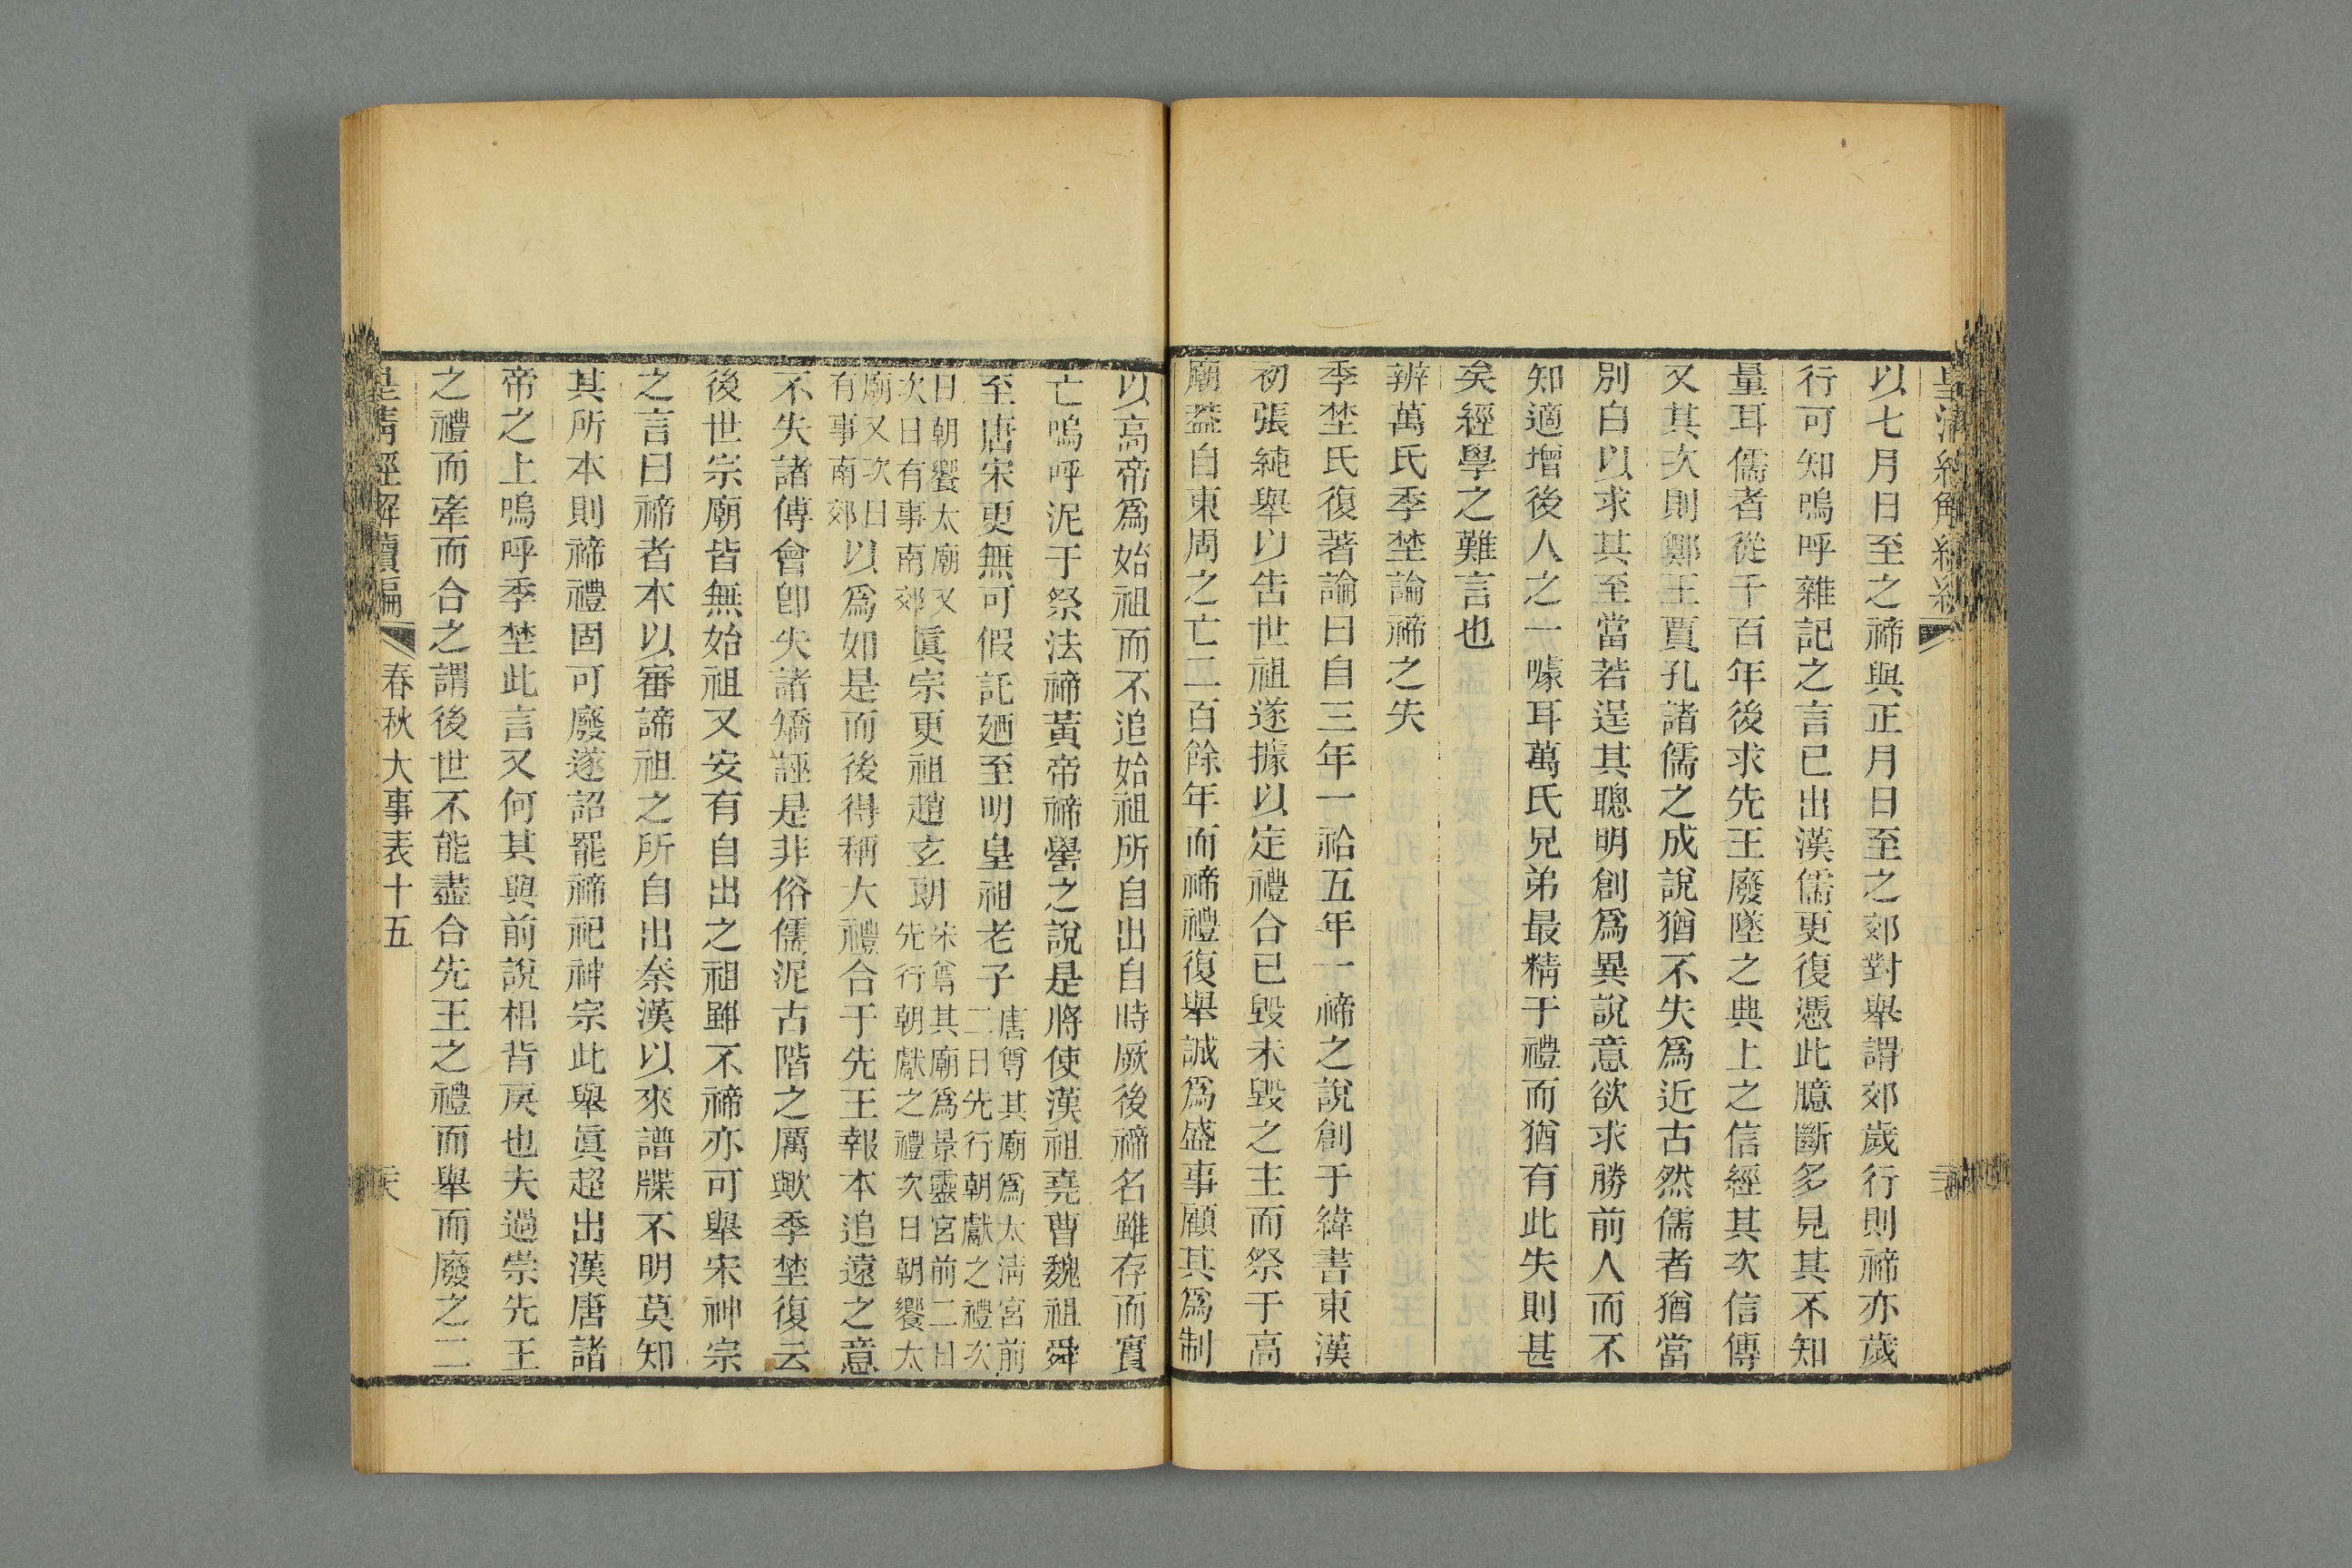 皇清經解續編
以七月日至之禘與正月日至之郊對舉謂郊歲行則禘亦歲
行可知嗚呼雜記之言已出漢儒更復憑此臆斷多見其不知
量耳儒者從千百年後求先王廢墜之典上之信經其次信傳
又其次則鄭王賈孔諸儒之成說猶不失為近古然儒者猶當
別白以求其至當若逞其聰明創為異說意欲求勝前人而不
知適增後人之一噱耳萬氏兄弟最精于禮而猶有此失則甚
矣經學之難言也
辨萬氏季埜論禘之失
季埜氏復著論曰自三年一祫五年一禘之說創于緯書東漢
初張純舉以告世祖遂據以定禮合已毀未毀之主而祭于高
廟益自東周之亡二百餘年而禘禮復舉誠為盛事顧其為制
以高帝為始祖而不追始祖所自出自時厥後禘名雖存而實
亡嗚呼泥于祭法禘黃帝禘嚳之說是將使漢祖堯曹魏祖舜
至唐宋更無可假託廼至明皇祖老子唐尊其廟為太清宮前二日先行朝獻之禮次
日朝饗太廟又次日有事南郊真宗更祖趙玄朗宋尊其廟為景靈宮前二日先行朝獻之禮次日朝饗太
廟又次日有事南郊以為如是而後得稱大禮合于先王報本追遠之意
不失諸傅會卽失諸矯誣是非俗儒泥古階之厲歟季埜復云
後世宗廟皆無始祖又安有自出之祖雖不禘亦可舉宋神宗
之言曰禘者本以審諦祖之所自出秦漢以來譜牒不明莫知
其所本則禘禮固可廢遂詔罷禘祀神宗此舉真超出漢唐諸
帝之上嗚呼季埜此言又何其與前說相背戾也夫過崇先王
之禮而牽而合之謂後世不能盡合先王之禮而舉而廢之二
皇清經解續編 春秋大事表十五